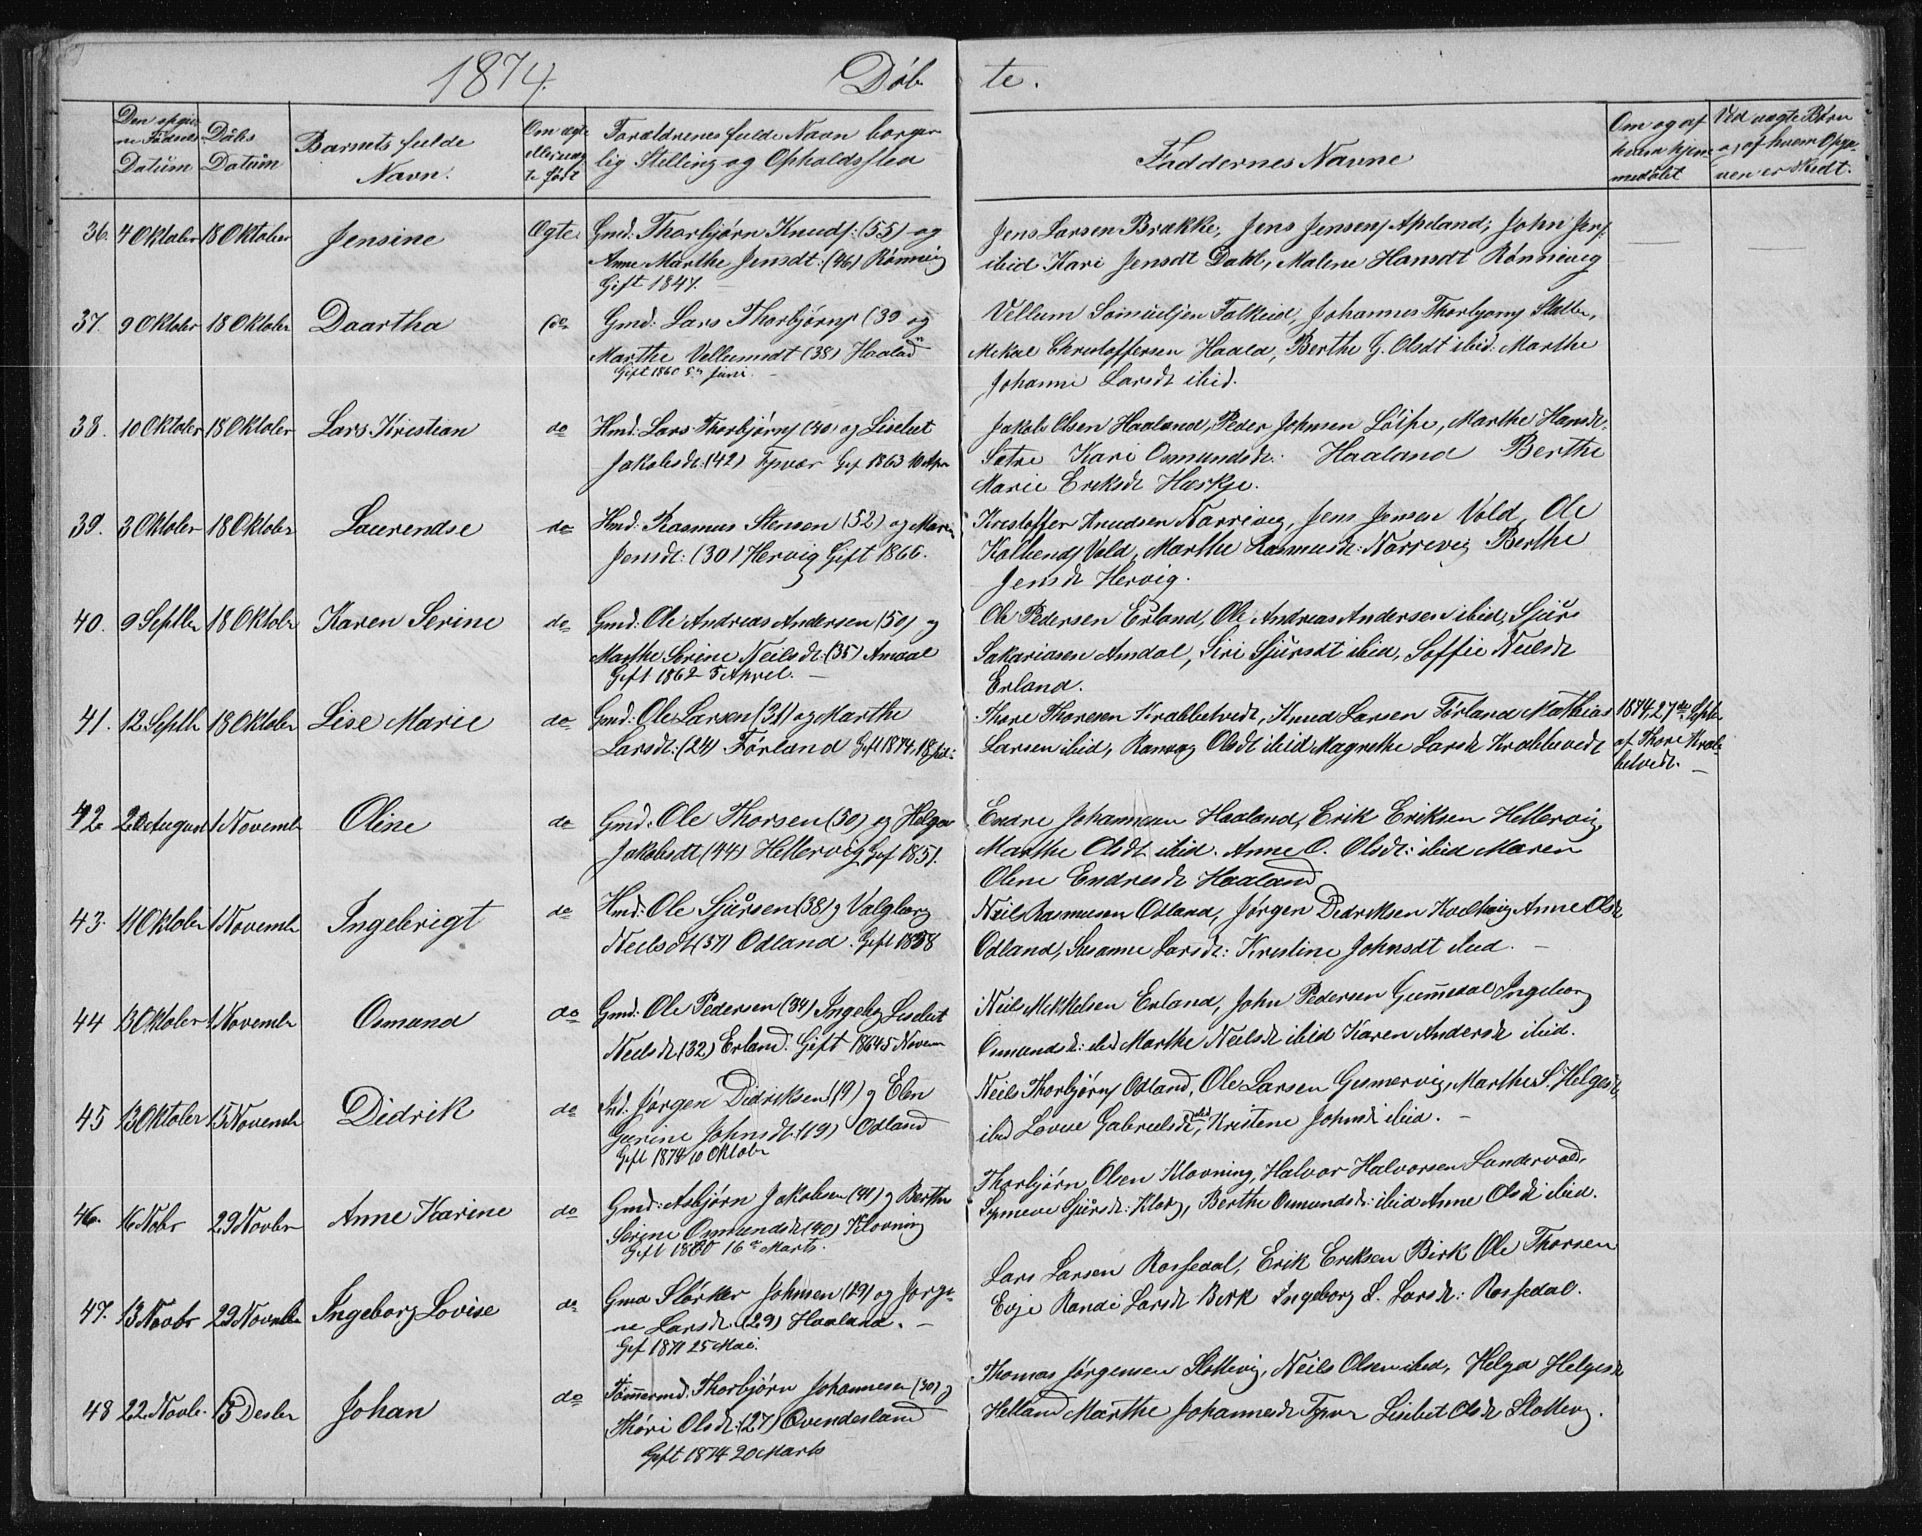 1874. Døbte.
Den opgivne Fødsels Datum
Døbs Datum
Barnets fulde Navn.
Om ægte eller uægte født
Forældrenes fulde Navn borgerlig Stilling og Opholdssted
Faddernes Navne
Om og af hvem hjemmedøbt
Ved uægte Børn og af hvem Opgaven er skedt.
36. 4 Oktober 18 Oktober Jensine Ægte. Gmd: Thorbjørn Knuds: (55) og
Anne Marthe Jensdt: (46) Rønnevig
Gift 1847. —
Jens Larsen Brakke, Jens Jensens Apeland, John Jens:
ibid Kari Jensdt Dahl, Malene Hansdt Rønnevig
37. 9 Oktober 18 Oktober Daartha do Gmd: Lars Thorbjørns (30 og
Marthe Vellumsdt (38) Haaland
Gift 1860 5te Juni. —
Vellum Samuelsen Falkeid, Johannes Thorbjørns Slatte,
Mekal Christoffersen Haala, Berthe G. Olsdt ibid: Marthe
Johanne Larsdt ibid.
38. 10 Oktober 18 Oktober Lars Kristian do Hmd: Lars Thorbjørns (30) og Lisebet
Jakobsdt: (42) Tysvær Gif 1863 10 Apr
Jakob Olsen Haaland, Peder Johnsen Løipe, Marthe Hansdt.
Sætre Kari Osmundsdt: Haaland Berthe
Marie Eriksdt Haskje.
39. 3 Oktober 18 Oktobr Laurendse do Hmd: Rasmus Stensen (52) og Maren
Jensdt: (30) Hervig Gift 1866.
Kristoffer Knudsen Narrevig, Jens Jensen Vold, Ole
Kolbends Vold, Marthe Rasmusdt: Norrevig Berthe
Jensdt Hervig.
40. 9 Septbr 18 Oktobr Karen Serine do Gmd: Ole Andreas Andersen (50) og
Marthe Serine Neilsdt: (35) Amdal
Gift 1862 5 April. —
Ole Pedersen Erland, Ole Andreas Andersen ibid, Sjurs
Sakariasen Amdal, Siri Sjursdt ibid, Soffie Neilsdt
Erland.
41. 12 Septbr 18 Oktober Lise Marie do Gmd: Ole Larsen (31) og Marthe
Larsdt: (24) Førland Gift 1874. 18
Thore Thoresen Krabbetvedt, Knud Larsen Førland Mathias
Larsen ibid, Ranvæg Olsdt ibid Magrethe Larsdt Krabbetvedt
1874, 27de Septbr
af Thore Krabbetvedt. —
42. 20 August 1 Novembr Oline do Gmd: Ole Thorsen (50) og Helga
Jakobsdt (44) Hellervig Gif 1851.
Endre Johannesen Haaland, Erik Eriksen Hellervig,
Marthe Olsdt ibid. Anne O. Olsdt: ibid Maren
Oline Endresdt Haaland
43. 11 Oktober 1 Novembr Ingebrigt do Hmd: Ole Sjursen (38) og Valgborg
Neilsdt (37) Odland. Gift 1858
Neils Rasmusen Odland, Jørgen Dedriksen Anne Olsdt
Odland, Susanne Larsdt: Kristine Johnsdt ibid. —
44 13 Oktober 1 Novembr Osmund do Gmd: Ole Pedersen (34) Ingeborg Lisebet
Neilsdt (32) Erland. Gift 1864 5 Novem
Neils Mekkelsen Erland, John Pedersen Gumedal Ingeborg
Osmundsdt: ibid Marthe Neilsdt ibid Karen Andersdt ibid.
45 13 Oktober 15 Novembr Didrik do Ind: Jørgen Didriksen (19) og Elen
Gurine Johnsdt: (19) Odland
Gift 1874 10 Oktobr
Neils Thorbjørns Odland, Ole Larsen Gesmervig, Marthe S. Helgesdt
ibid Lovise Gabrielsdt, ibid Kristene Johnsdt ibid. —
46. 16 Nobr 29 Novbr Anne Karine do Gmd: Asbjørn Jakobsen (41) og Berthe
Serine Osmundsdt (40) Klovning
Gift 1860 16de Marts.
Thorbjørn Olsen Klovning, Halvor Halvorsen Sundervold,
Synneve Sjursdt: Klog, Berthe Osmundsdt: ibid Anne Olsdt ibid.
47. 13 Novbr 29 Novembr Ingeborg Lovise do Gmd Størker Johnsen (29) og Jørgine
Larsdt: (29) Haaland. —
Gif 1871 25 Mai.
Lars Larsen Rossedal, Erik Eriksen Birk Ole Thorsen
Evje Randi Larsdt Birk Ingeborg S. Larsdt: Rossedal.
48 22 Novbr. 15 Desbr Johan do Tømermd: Thorbjørn Johannesen (30) og
Thøri Olsdt: (27) Øvendesland
Gift 1874 20 Marts
Thomas Jørgensen Slottevig, Neils Olsen ibid, Helga Helgesdt
Helland Marthe Johannesdt Tysvr Lisebet Olsdt Slottevig.